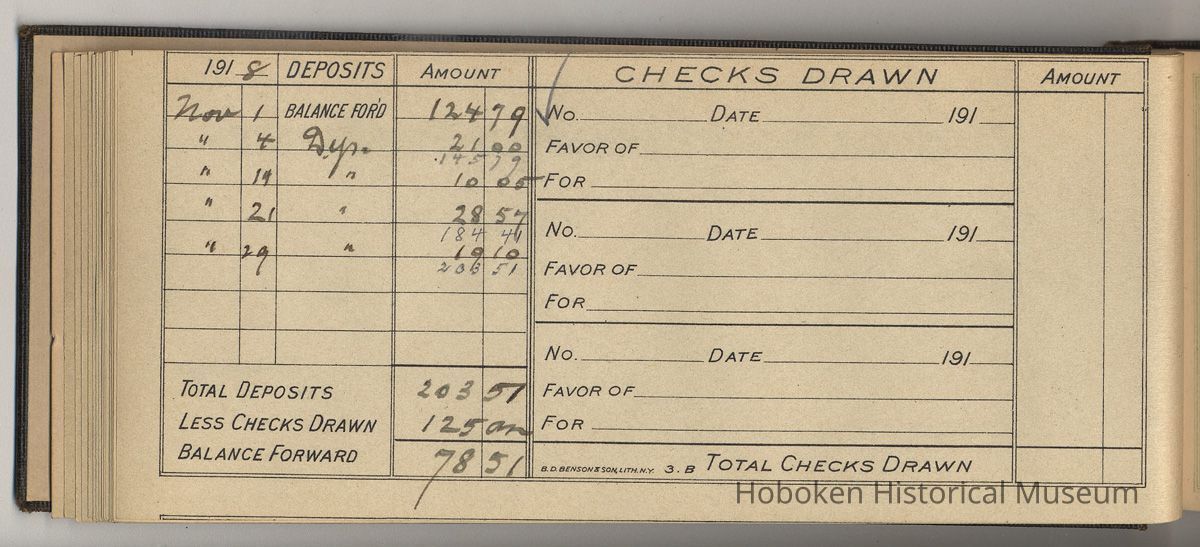 1918 DEPOSITS AMOUNT
Nov 1 BALANCE FOR'D 124 79
" 4 Dep. 21 00
145 79
" 19 " 10 05
" 21 " 28 57
184 41
" 29 " 19 10
203 51
TOTAL DEPOSITS 203 51
LESS CHECKS DRAWN 125 00
BALANCE FORWARD 78 51
CHECKS DRAWN AMOUNT
No. DATE 191
FAVOR OF
FOR
No. DATE 191
FAVOR OF
FOR
No. DATE 191
FAVOR OF
FOR
B.D. BENSON & SON, LITH. N.Y. 3.B TOTAL CHECKS DRAWN
Hoboken Historical Museum